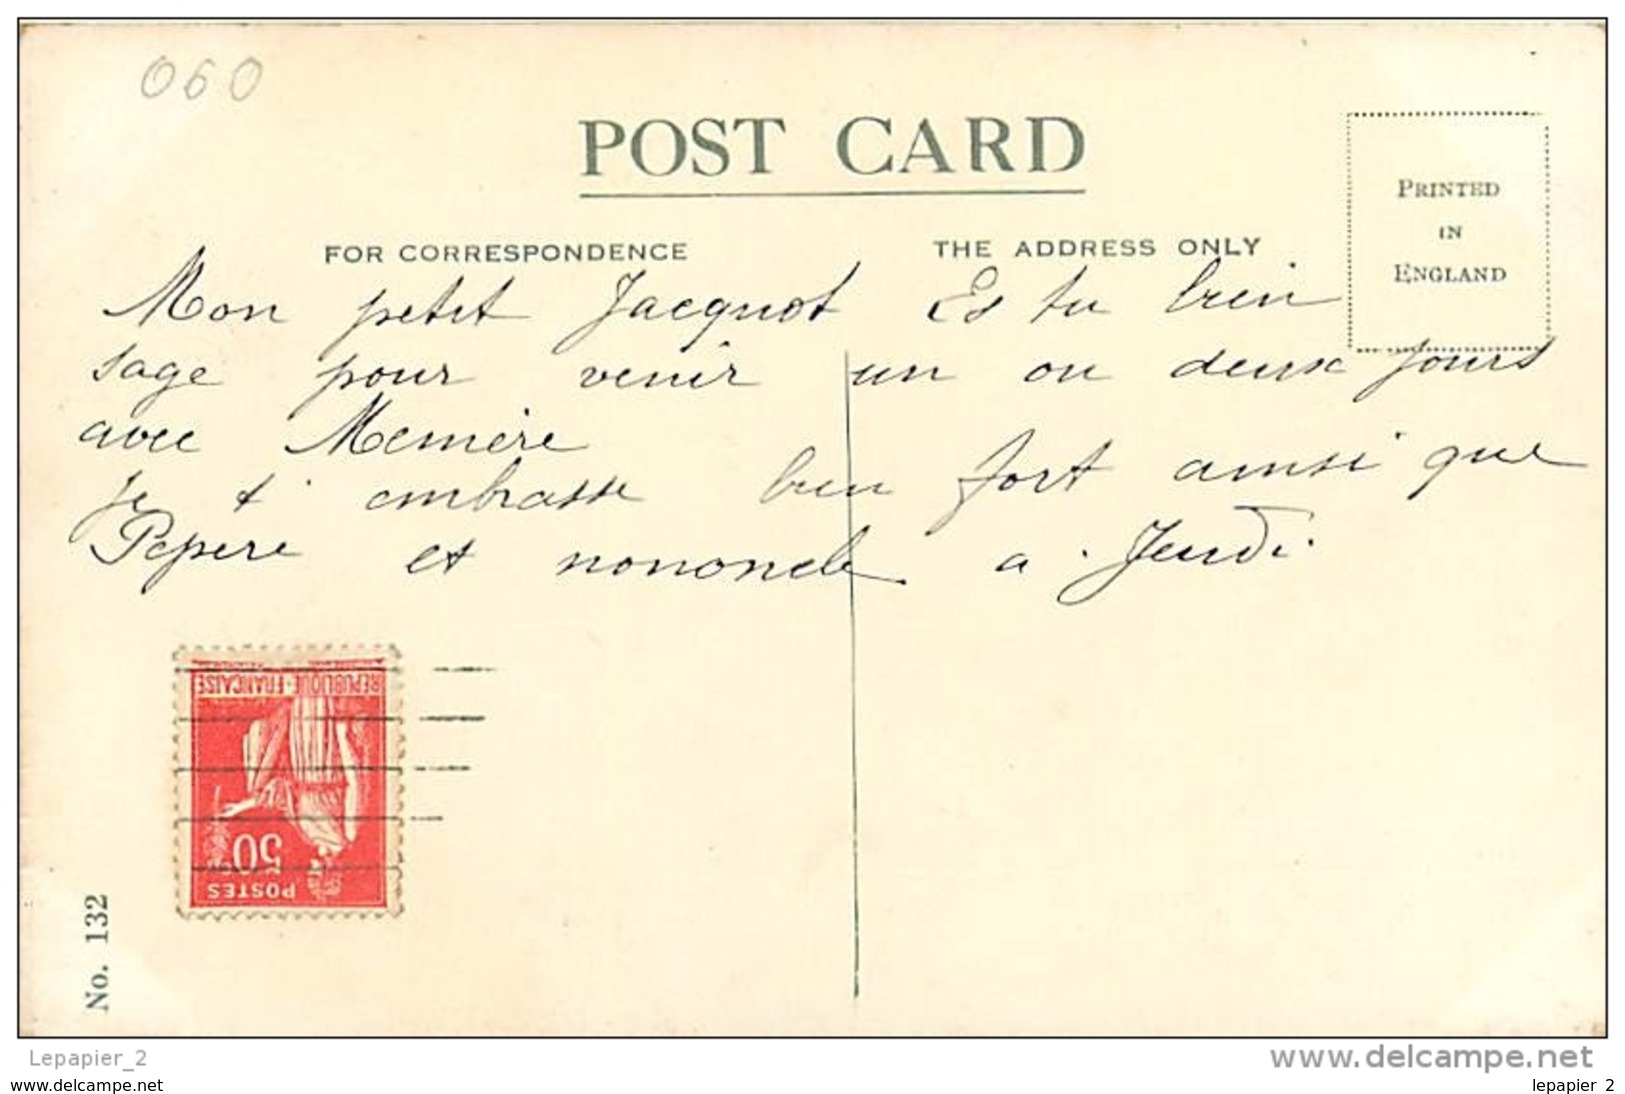 060
POST CARD
PRINTED
IN
ENGLAND
FOR CORRESPONDENCE
THE ADDRESS ONLY
Mon petit Jacquot Es tu bien
sage pour venir un ou deux jours
avec Memère
je t' embrasse bien fort ainsi que
Pepere et nononcle a Jeudi.
REPUBLIQUE·FRANÇAISE
50c
POSTES
No. 132
Lepapier_2
www.delcampe.net
www.delcampe.net
lepapier_2